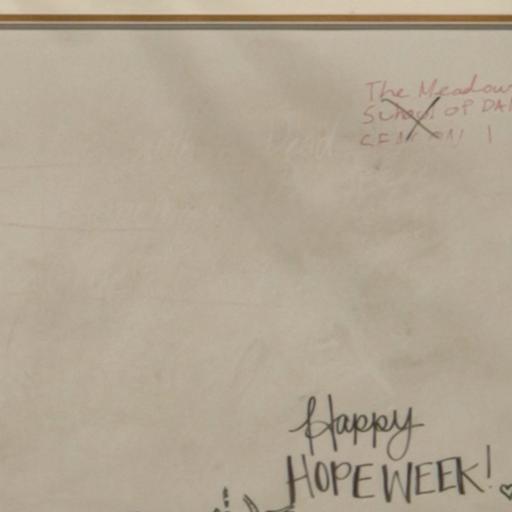 The Meadow
School of DA
Happy
HOPE WEEK!